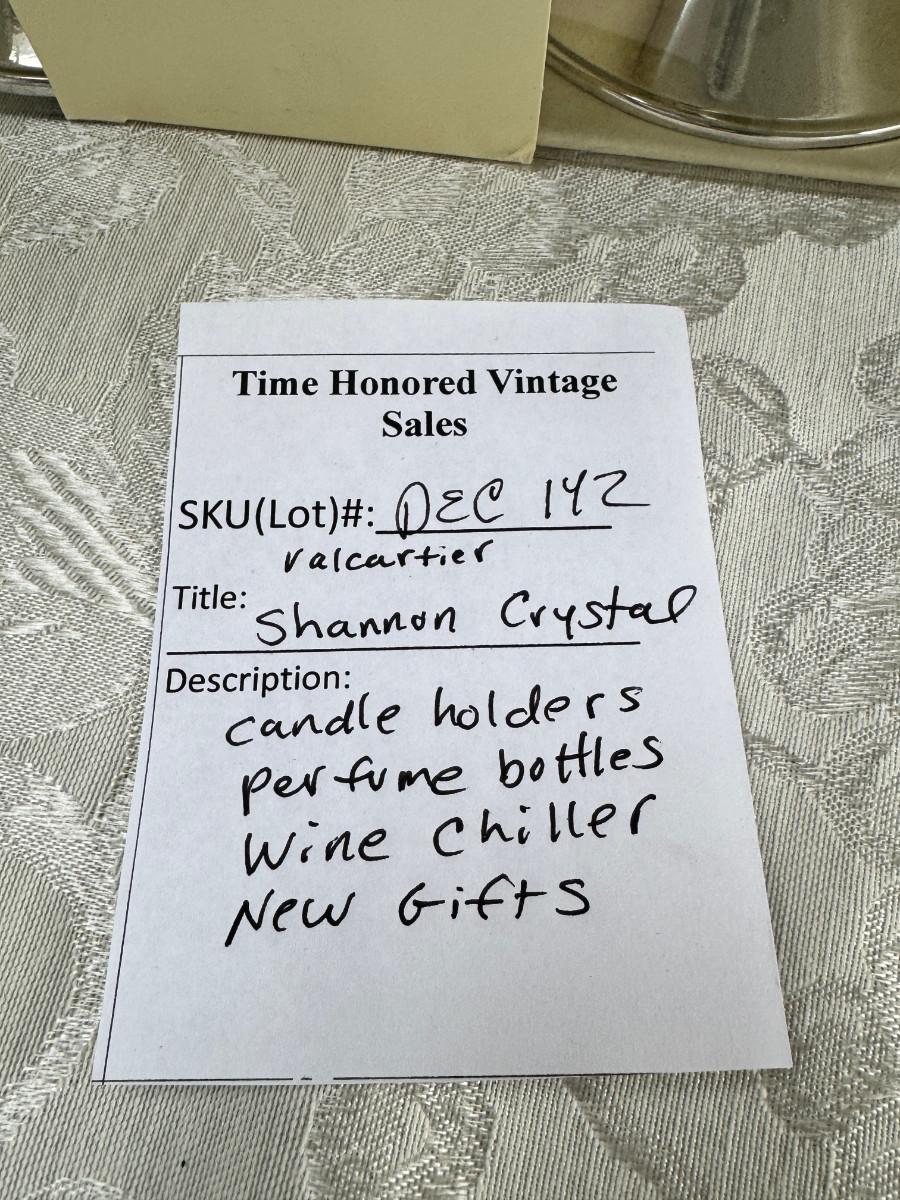 Time Honored Vintage
Sales
SKU(Lot)#: DEC 142
Valcartier
Title: Shannon Crystal
Description:
candle holders
perfume bottles
Wine Chiller
New Gifts